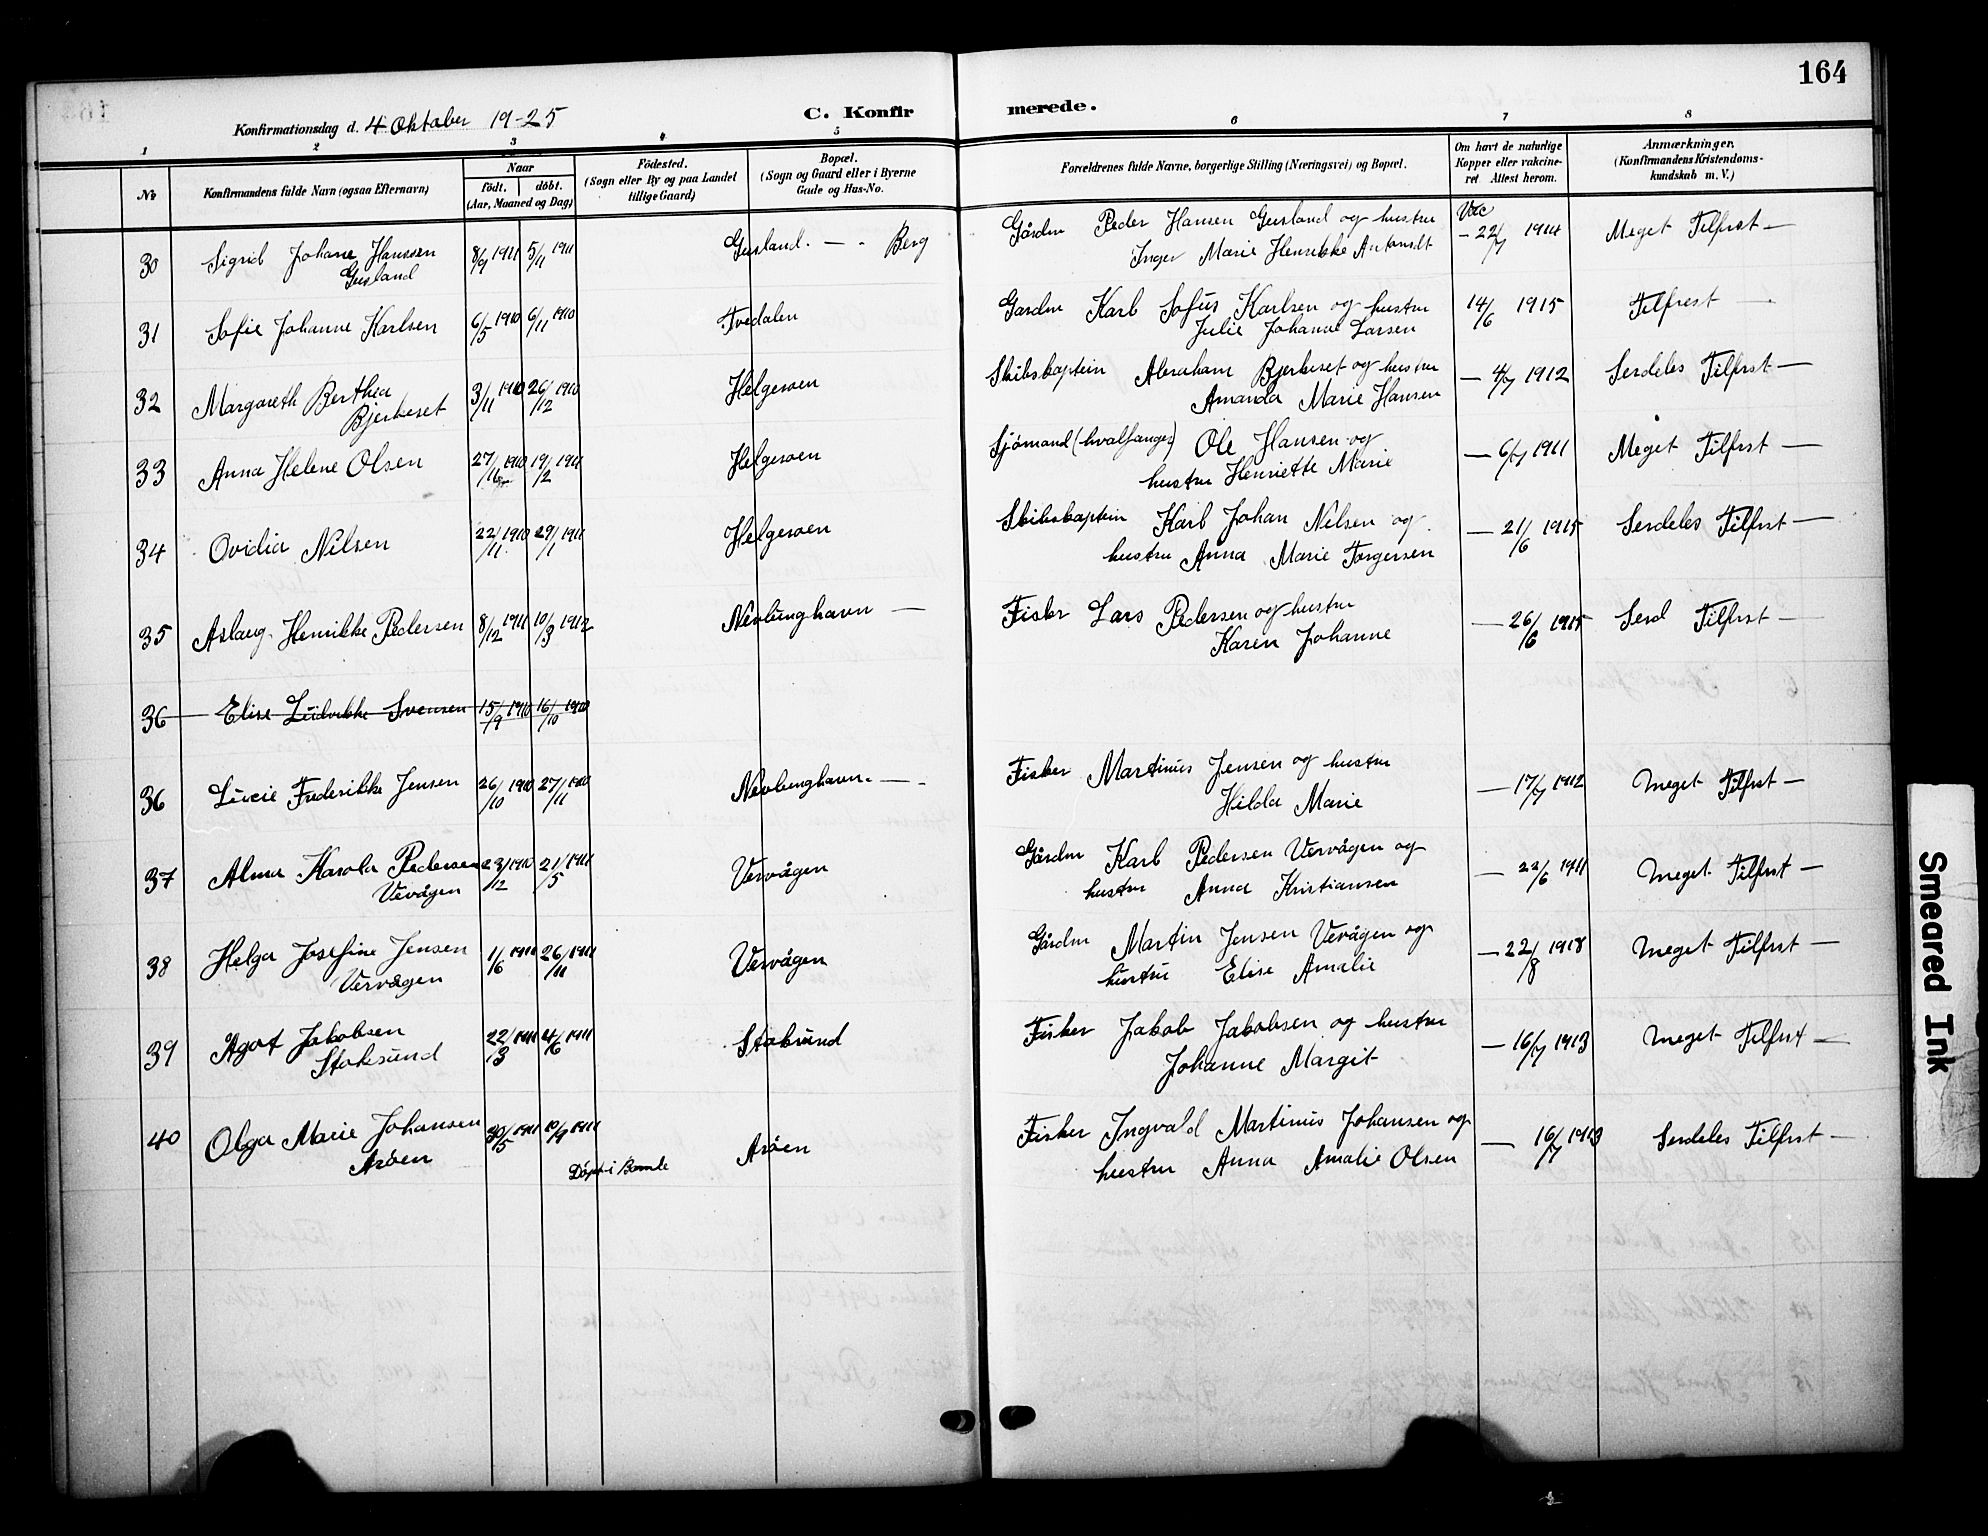 164
Konfirmationsdag d. 4 Oktober 19-25
C. Konfirmerede.
1 2 3 4 5 6 7 8
No
Konfirmandens fulde Navn (ogsaa Efternavn)
Naar
födt. döbt.
(Aar, Maaned og Dag)
Födested.
(Sogn eller By og paa Landet
tillige Gaard)
Bopæl.
(Sogn og Gaard eller i Byerne
Gade og Hus-No.
Forældrenes fulde Navne, borgerlige Stilling (Næringsvei) og Bopæl.
Om havt de naturlige
Kopper eller vakcine-
ret Attest herom.
Anmærkninger.
(Konfirmandens Kristendoms-
kundskab m. V.)
30 Sigrid Johane Hanssen 8/9 1911 5/11 1911 Gusland. — - Berg Gårdm Peder Hansen Gusland og hustru Vac - 22/7 1914 Meget Tilfrst —
Gusland Inger Marie Henrikke Antonsdt
31 Sofie Johanne Karlsen 6/5 1910 6/11 1910 Tvedalen Gardm Karl Sofus Karlsen og hustru 14/6 1915 Tilfrest —
Julie Johanne Larsen
32 Margareth Berthea 3/11 1910 26/12 1910 Helgeroen Skibskaptein Abraham Bjerkeset og hustru — 4/7 1912 Serdeles Tilfrst —
Bjerkeset Amanda Marie Hansen
33 Anna Helene Olsen 27/11 1910 19/2 1911 Helgeroen Sjömand (hvalfanger) Ole Hansen og — 6/7 1911 Meget Tilfrst —
hustru Henriette Marie
34 Ovidia Nilsen 22/11 1910 29/1 1911 Helgeroen Skibskaptein Karl Johan Nilsen og — 21/6 1915 Serdeles Tilfrst —
hustru Anna Marie Torgersen
35 Aslaug Henrikke Pedersen 8/12 1911 10/3 1912 Nevlunghavn — Fisker Lars Pedersen og hustru — 26/6 1915 Serd Tilfrst —
Karen Johanne
36 Elise Ludvikke Svensen 15/9 1910 16/10 1910
36 Lucie Frederikke Jensen 26/10 1910 27/11 1910 Nevlunghavn. — - Fisker Martinus Jensen og hustru — 17/7 1912 Meget Tilfrst —
Hilda Marie
37 Alma Karola Pedersen 23/12 1910 21/5 1911 Vervågen Gårdm Karl Pedersen Vervågen og — 22/6 1911 Meget Tilfrst —
Vevågen hustru Anna Kristiansen
38 Helga Josefine Jensen 1/6 1911 26/11 1911 Vervågen Gårdm Martin Jensen Vevågen og — 22/8 1918 Meget Tilfrst —
Vervågen hustru Elise Amalie
39 Agot Jakobsen 22/3 1911 4/6 1911 Stoksund Fisker Jakob Jakobsen og hustru — 16/7 1913 Meget Tilfrst —
Stoksund Johanne Margit
40 Olga Marie Johansen 30/5 1911 10/9 1911 Aröen Fisker Ingvald Martinus Johansen og — 16/7 1913 Serdeles Tilfrst —
Aröen Döpt i Bamle hustru Anna Amalie Olsen
Smeared Ink